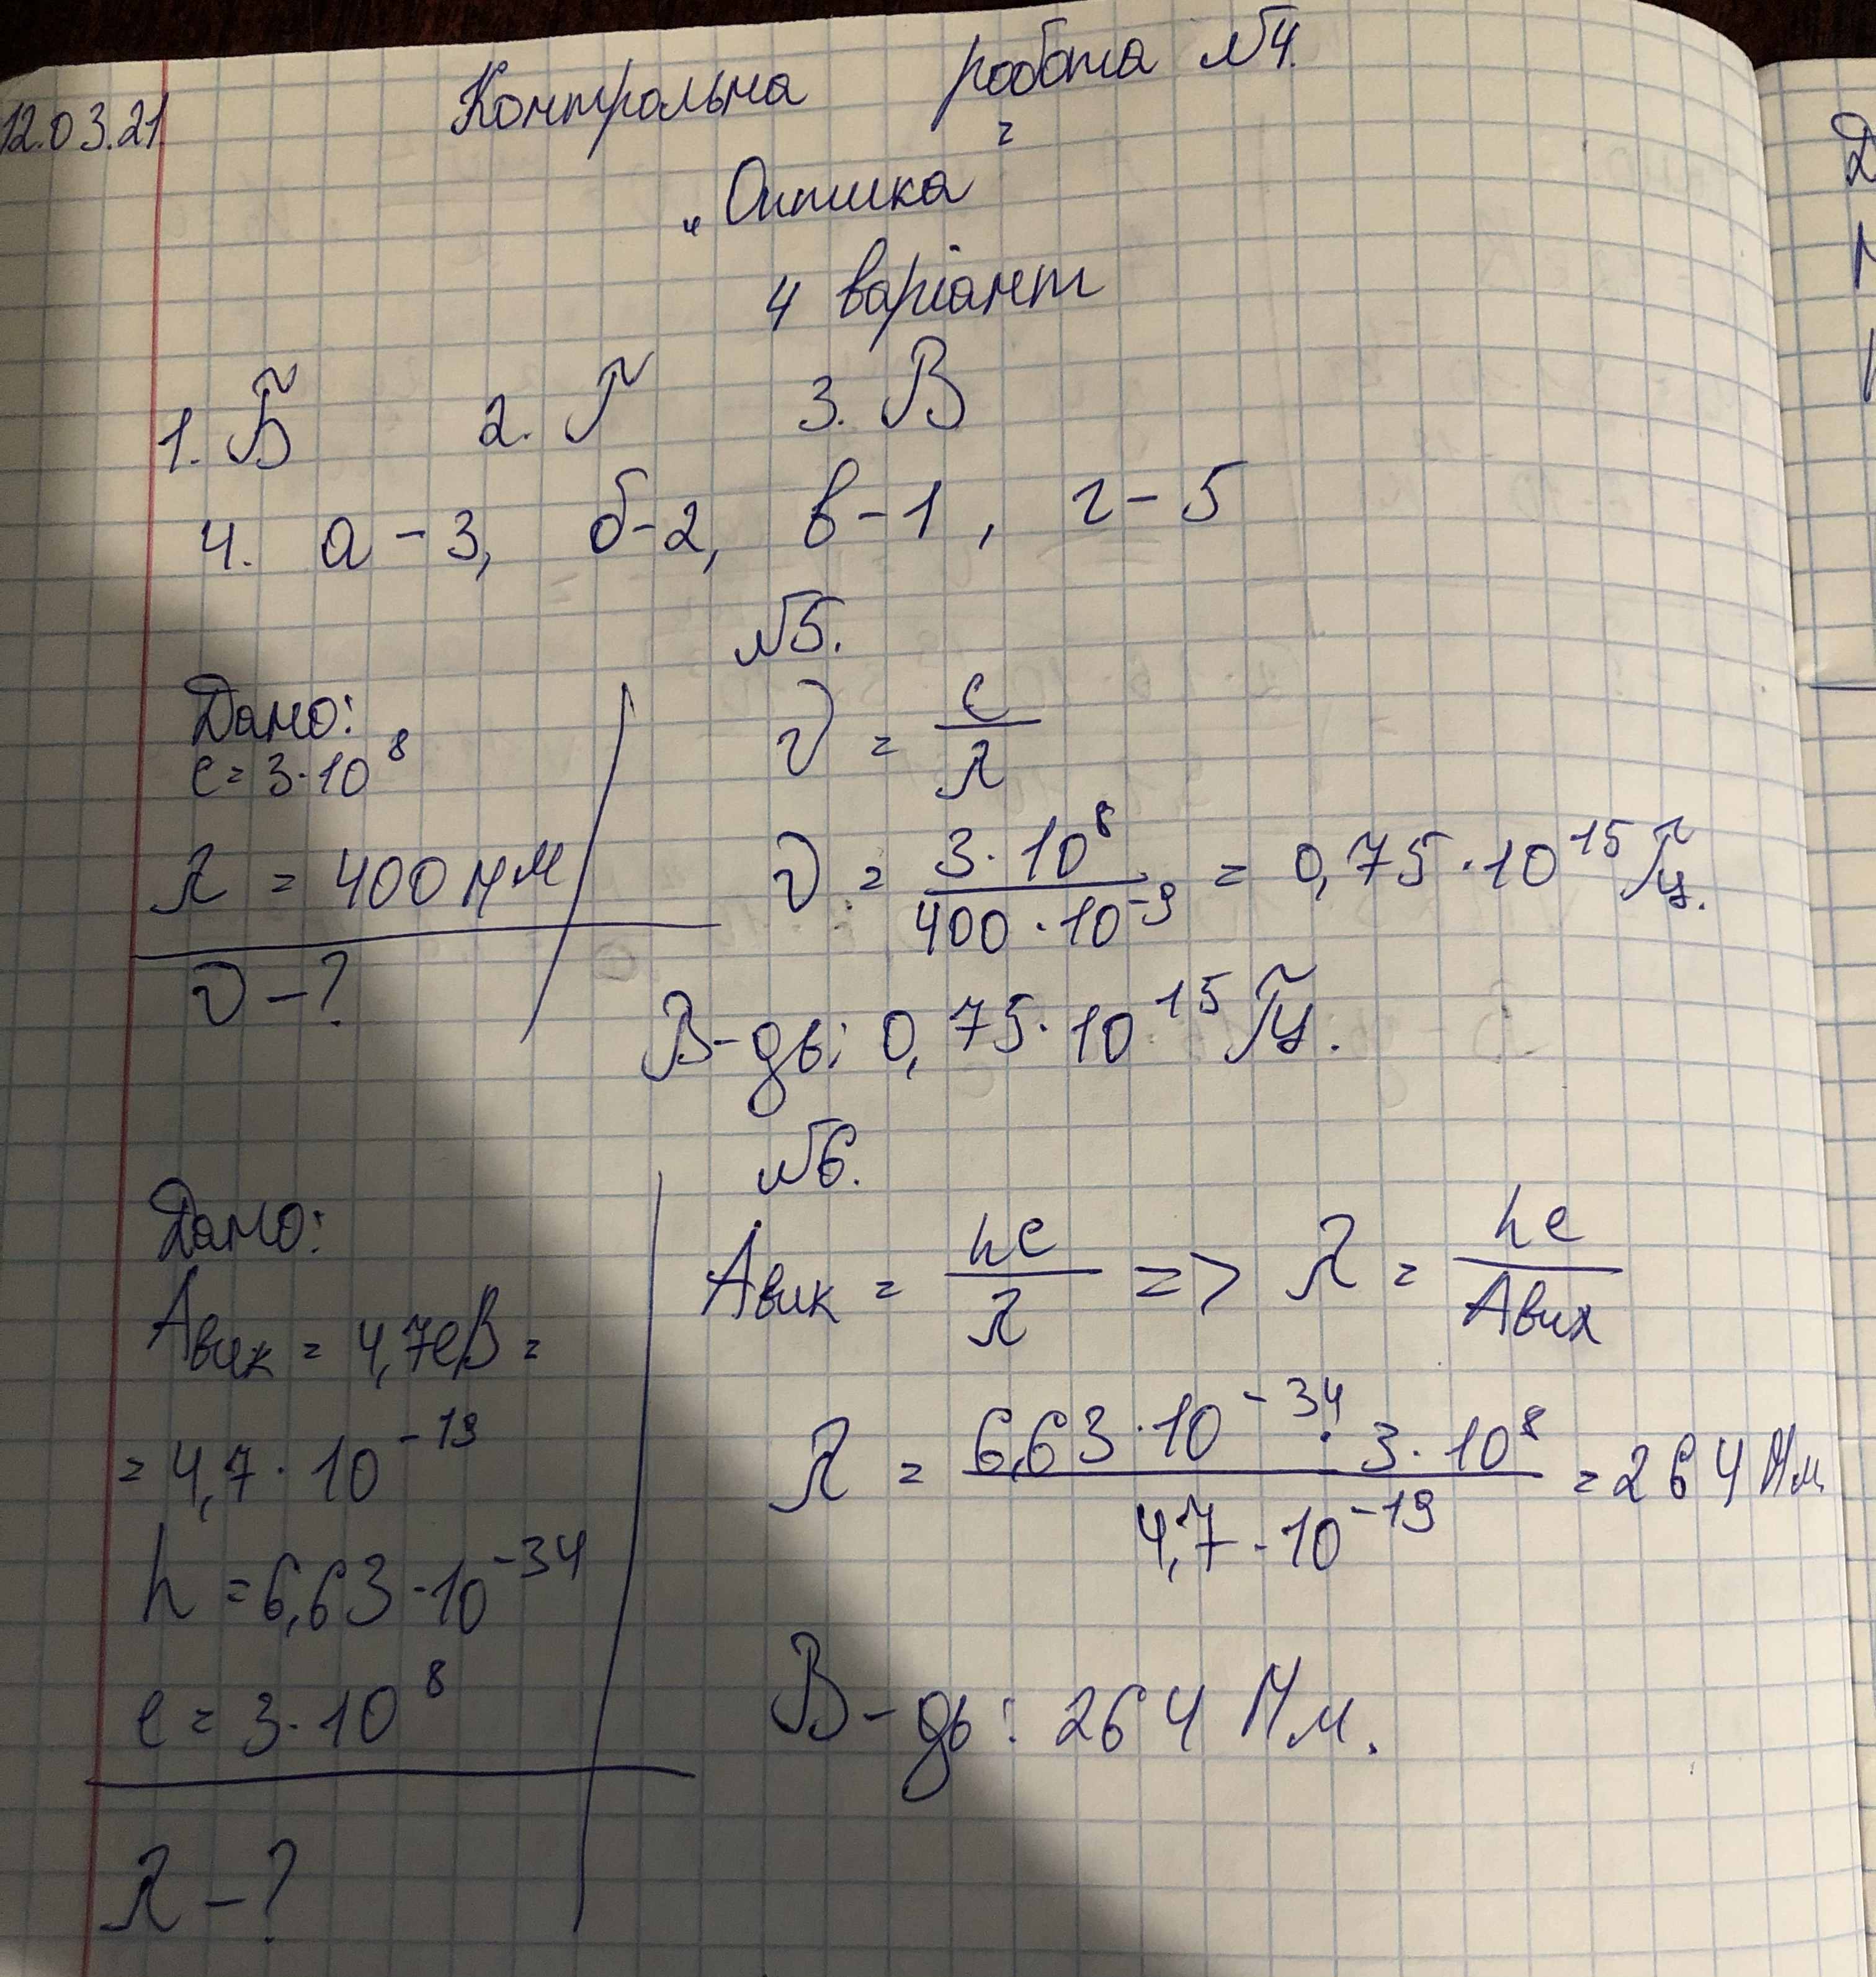 12.03.21. Контрольна робота №4.
"Оптика"
4 варіант
1. Б 2. Г 3. В
4. а - 3, б - 2, в - 1, г - 5
№5.
Дано:
c = 3·10⁸
λ = 400 нм
ν - ?
ν = c/λ
ν = 3·10⁸/400·10⁻⁹ = 0,75·10¹⁵ Гц.
В-дь: 0,75·10¹⁵ Гц.
№6.
Дано:
Aвик = 4,7еВ =
= 4,7·10⁻¹⁹
h = 6,63·10⁻³⁴
c = 3·10⁸
λ - ?
Aвик = hc/λ => λ = hc/Aвих
λ = 6,63·10⁻³⁴·3·10⁸/4,7·10⁻¹⁹ = 264 Нм
В-дь: 264 Нм.